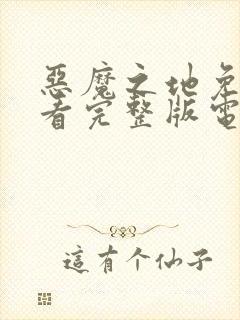 惡魔之地免
看完整版電
這有个仙子